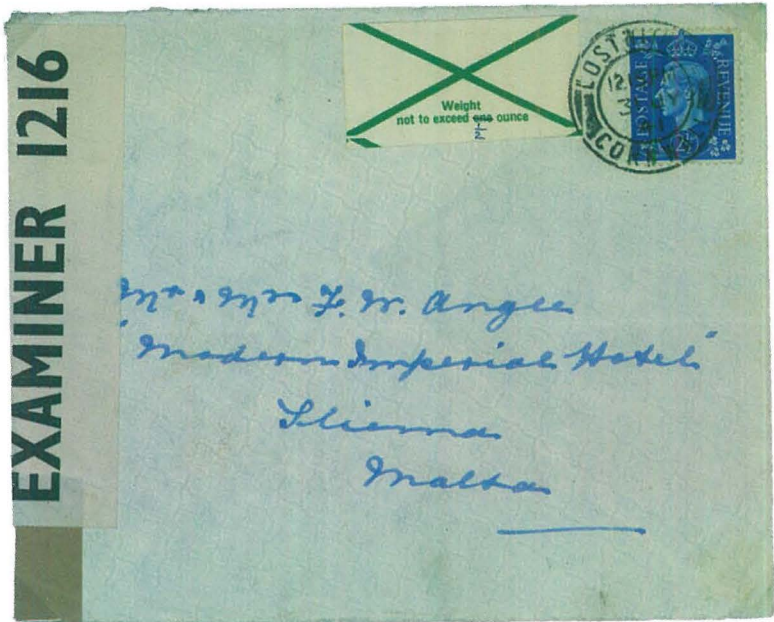 EXAMINER 1216
Weight
not to exceed one ounce
½
POSTAGE
REVENUE
2½
Mr & Mrs F. W. Angle
"Modern Imperial Hotel"
Sliema
Malta